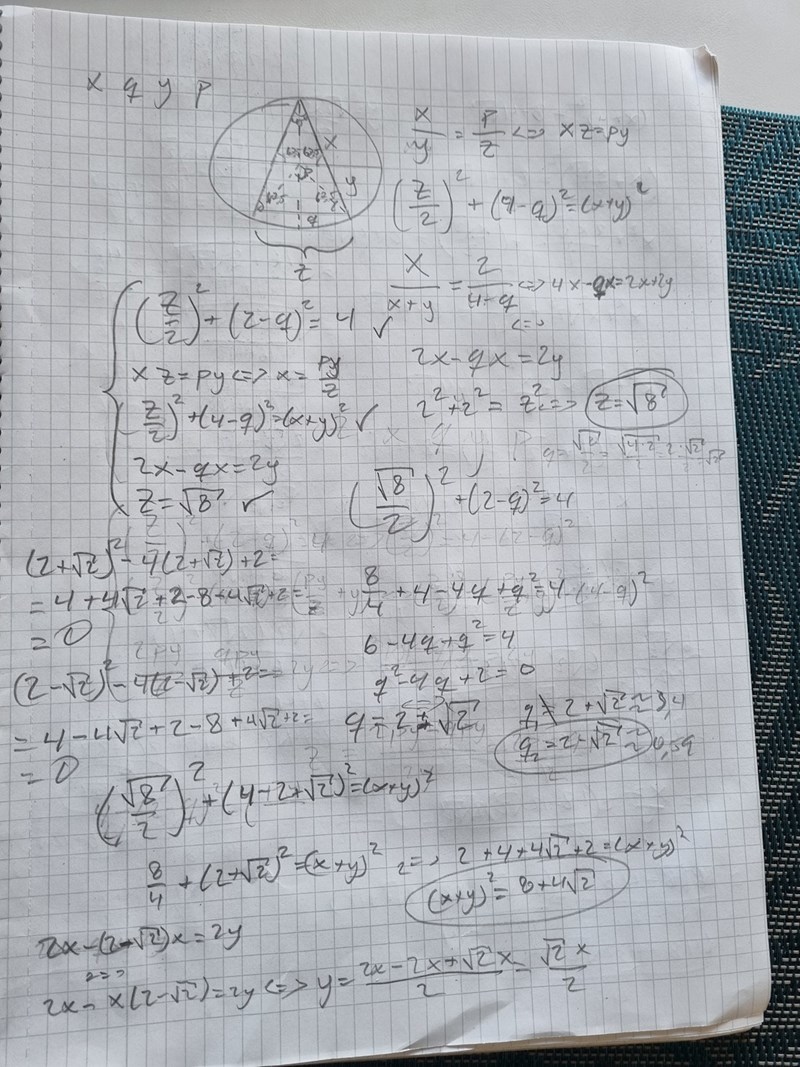 x q y p
x/y = p/z <=> xz=py
(z/2)² + (4-q)² = (x+y)²
z
x/(x+y) = 2/(4-q) <=> 4x-qx=2x+2y
<=>
2x-qx=2y
(z/2)² + (2-q)² = 4 ✓
xz=py <=> x= py/z
(z/2)² + (4-q)² = (x+y)² ✓
2x-qx=2y
z=√8 ✓
2²+2² = z² <=> z=√8
(√8/2)² + (2-q)² = 4
(2+√2)² - 4(2+√2)+2=
= 4+4√2+2-8-4√2+2=
= 0
6-4q+q²=4
q²-4q+2=0
(2-√2)² - 4(2-√2)+2=
= 4-4√2+2-8+4√2+2=
= 0
q=2±√2
q₁=2+√2≈3,4
q₂=2-√2≈0,59
(√8/2)² + (4-2+√2)² = (x+y)²
8/4 + (2+√2)² = (x+y)² <=> 2+4+4√2+2=(x+y)²
(x+y)² = 8+4√2
2x-(2-√2)x=2y
<=>
2x-x(2-√2)=2y <=> y= (2x-2x+√2x)/2 = √2x/2